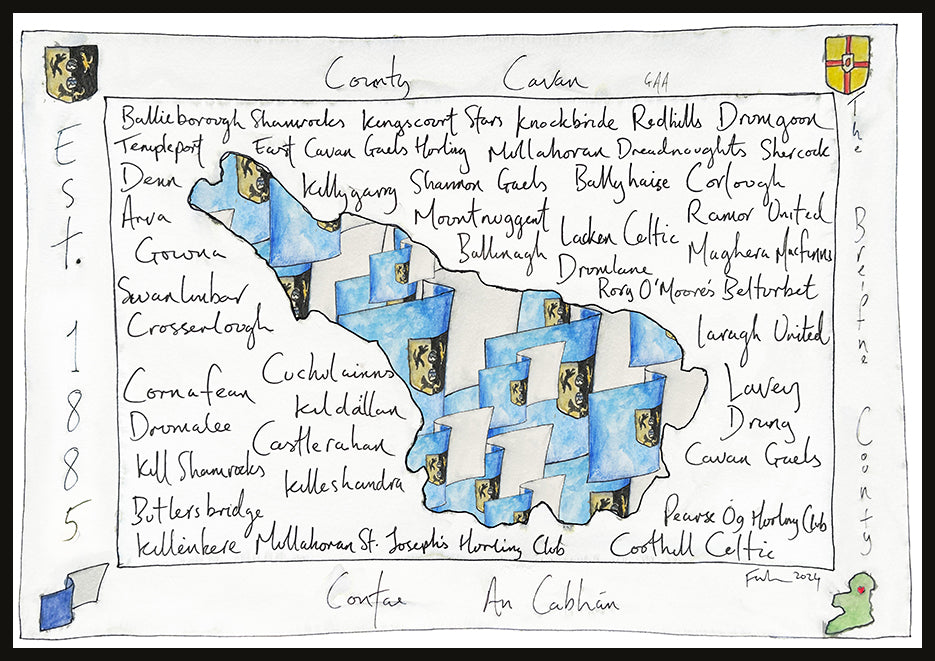 County Cavan GAA
EST. 1885
The Breifne County
Ballieborough Shamrocks Kingscourt Stars Knockbride Redhills Dromgoon
Templeport East Cavan Gaels Horling Mullahoran Dreadnaughts Shercock
Denn Killygarry Shannon Gaels Ballyhaise Corlough
Arva Mountnuggent Ramor United
Gowna Ballinagh Lacken Celtic Maghera MacFinns
Dromlane
Swanlinbar Rory O'Moore's Belturbet
Crosserlough Laragh United
Cuchulainns Lavey
Cornafean Kildallan
Dromalee Drung
Castlerahan Cavan Gaels
Kill Shamrocks Killeshandra
Butlersbridge Pearse Óg Horling Club
Killinkere Mullahoran St. Joseph's Horling Club Coothill Celtic
2024
Contae An Cabhán